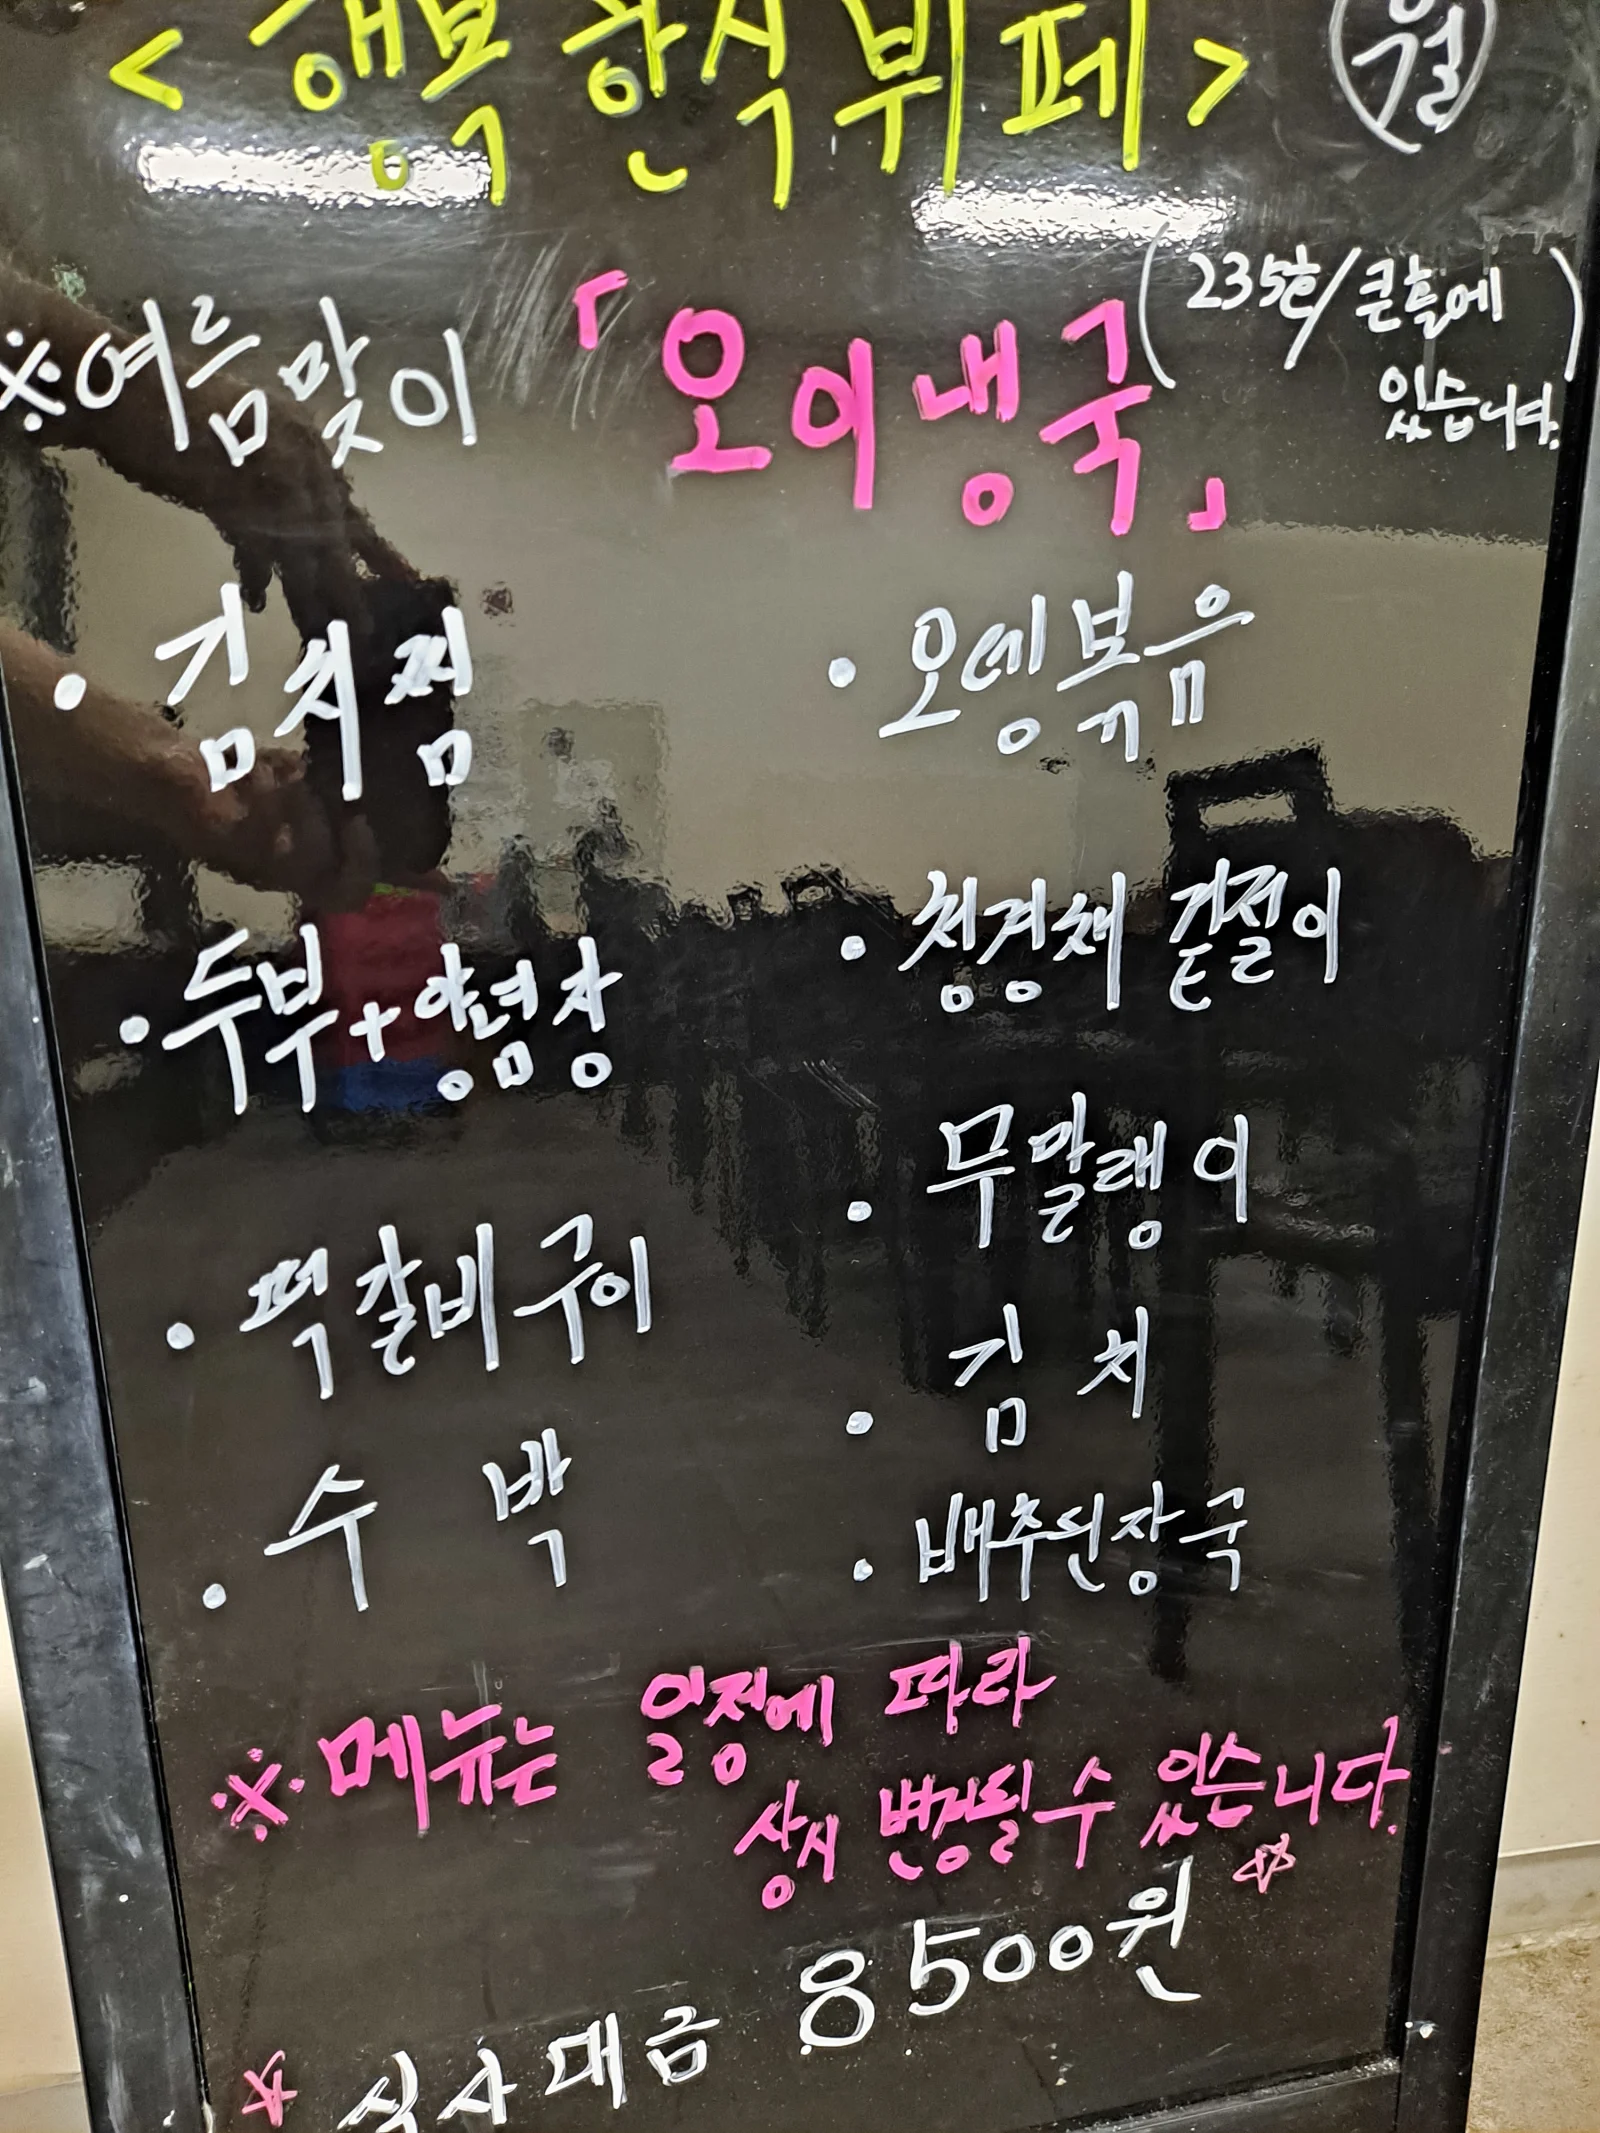 <행복 한식 뷔페> 월
※여름맞이 「오이냉국」 (235호/큰홀에
있습니다.)
· 김치찜
· 오뎅볶음
· 두부+양념장
· 청경채 겉절이
· 떡갈비구이
· 무말랭이
· 수박
· 김치
· 배추된장국
※메뉴는 일정에 따라
상시 변경될 수 있습니다.
☆ 식사대금 8500원 ☆